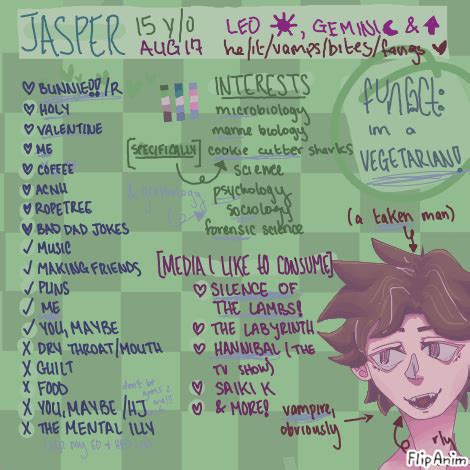 JASPER
15 Y/O
AUG 17
LEO, GEMINI &
he/it/vamps/bites/fangs
BUNNIE!!/R
HOLY
VALENTINE
ME
COFFEE
ACNH
ROPETREE
BAD DAD JOKES
✓ MUSIC
✓ MAKING FRIENDS
✓ PUNS
✓ ME
✓ YOU, MAYBE
X DRY THROAT/MOUTH
X GUILT
X FOOD
X YOU, MAYBE /HJ
X THE MENTAL ILLY
INTERESTS
microbiology
marine biology
[SPECIFICALLY]
cookie cutter sharks
science
psychology
sociology
forensic science
[MEDIA I LIKE to CONSUME]
SILENCE OF
THE LAMBS!
THE LABYRINTH
HANNIBAL (THE
TV SHOW)
SAIKI K
& MORE!
FUN FACT:
Im a
VEGETARIAN!
(a taken man)
vampire,
obviously
rly
FlipAnim